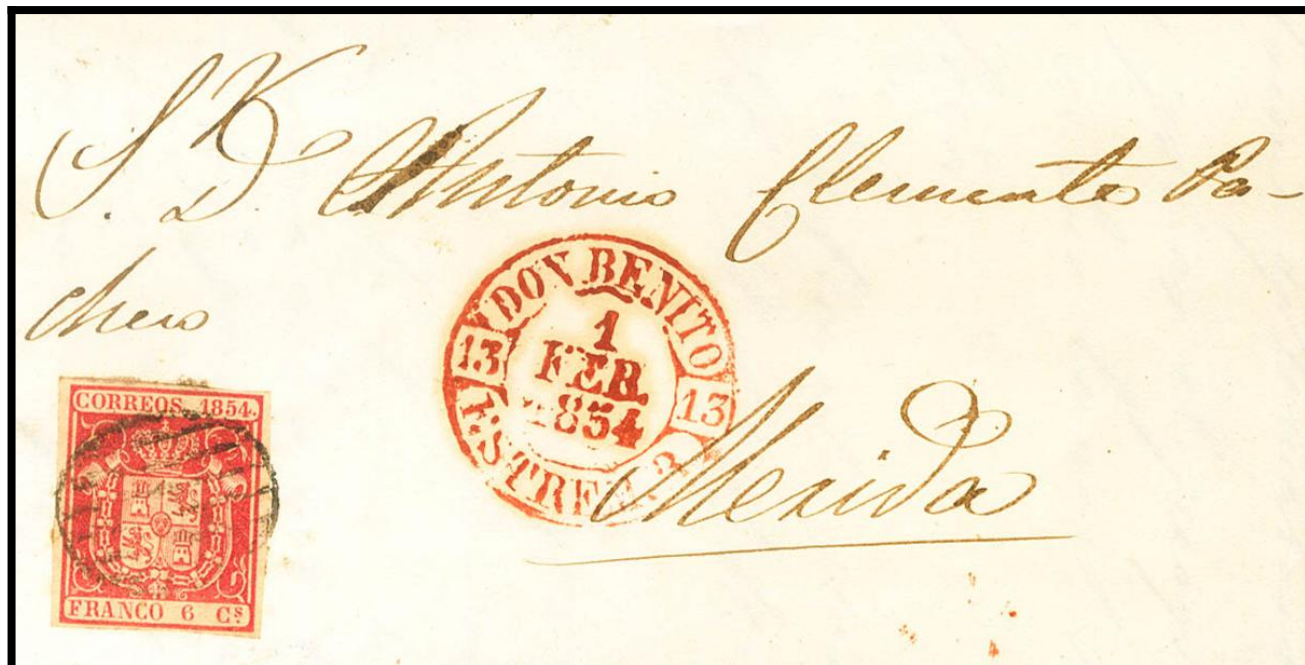 S. D. Antonio Clemente Pa-
checo
DON BENITO
1
FEB.
1854
13
13
ESTREM.
Merida
CORREOS 1854.
FRANCO 6 Cs